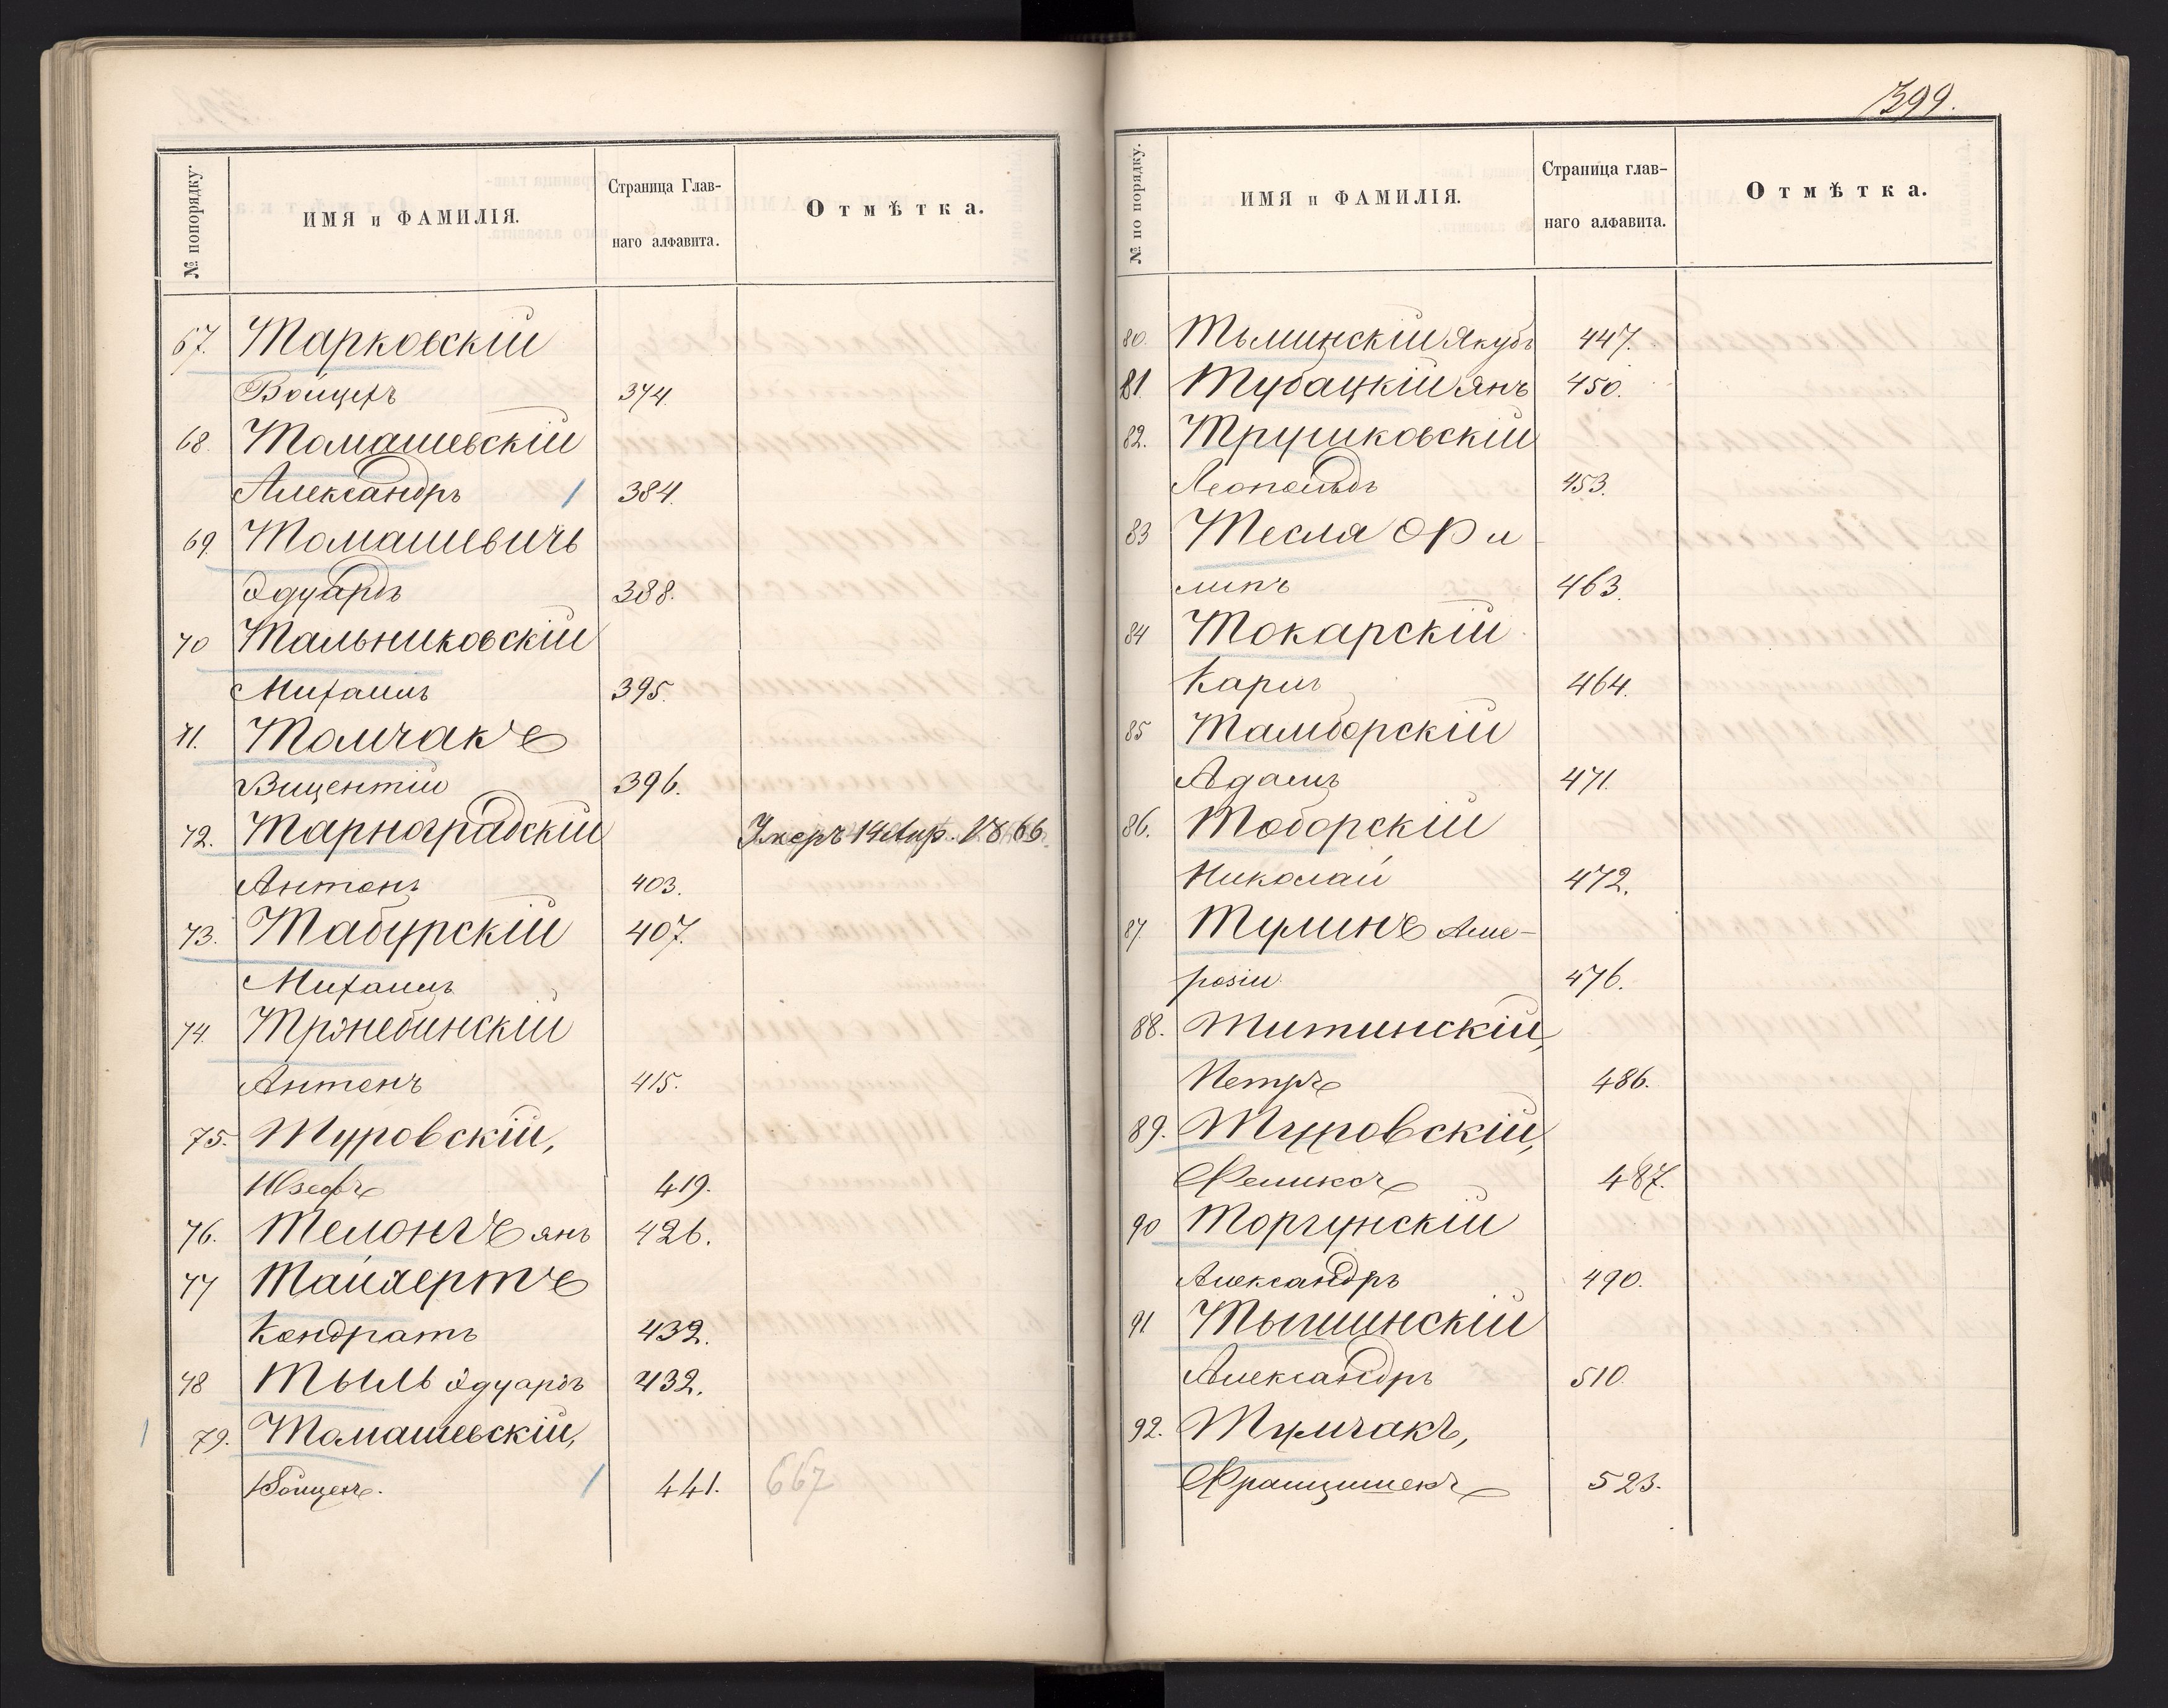 № попорядку. ИМЯ и ФАМИЛІЯ. Страница Глав-наго алфавита. Отмѣтка.
67. Тарковскій
Войцехъ 374.
68. Томашевскій
Александръ 384.
69. Томашевичъ
Эдуардъ 388.
70 Тальниковскій
Михаилъ 395.
71. Томчакъ
Вицентій 396.
72. Тарнаградскій Умеръ 14 Апр. 1866.
Антонъ 403.
73. Табурскій 407.
Михаилъ
74. Трженбинскій
Антонъ 415.
75. Туровскій,
Юзефъ 419.
76. Телонгъ Янъ 426.
77 Тайхертъ
Кондратъ 432.
78 Тыль Эдуардъ 432.
79. Томашевскій,
Войцехъ. 441. 667
399.
№ по порядку. ИМЯ и ФАМИЛІЯ. Страница глав-наго алфавита. Отмѣтка.
80. Тыминскій Якубъ 447.
81. Тубацкій Янъ 450.
82. Трушковскій
Леопольдъ 453.
83 Тесля Фи
липъ 463.
84 Токарскій
Карлъ 464.
85 Тамборскій
Адамъ 471.
86. Тоборскій
Николай 472.
87. Тулинъ
476.
88. Титинскій,
Петръ 486.
89. Туровскій,
Феликсъ 487.
90 Торгунскій
Александръ 490.
91 Тышинскій
Александръ 510.
92. Тумчакъ,
Францишекъ 523.